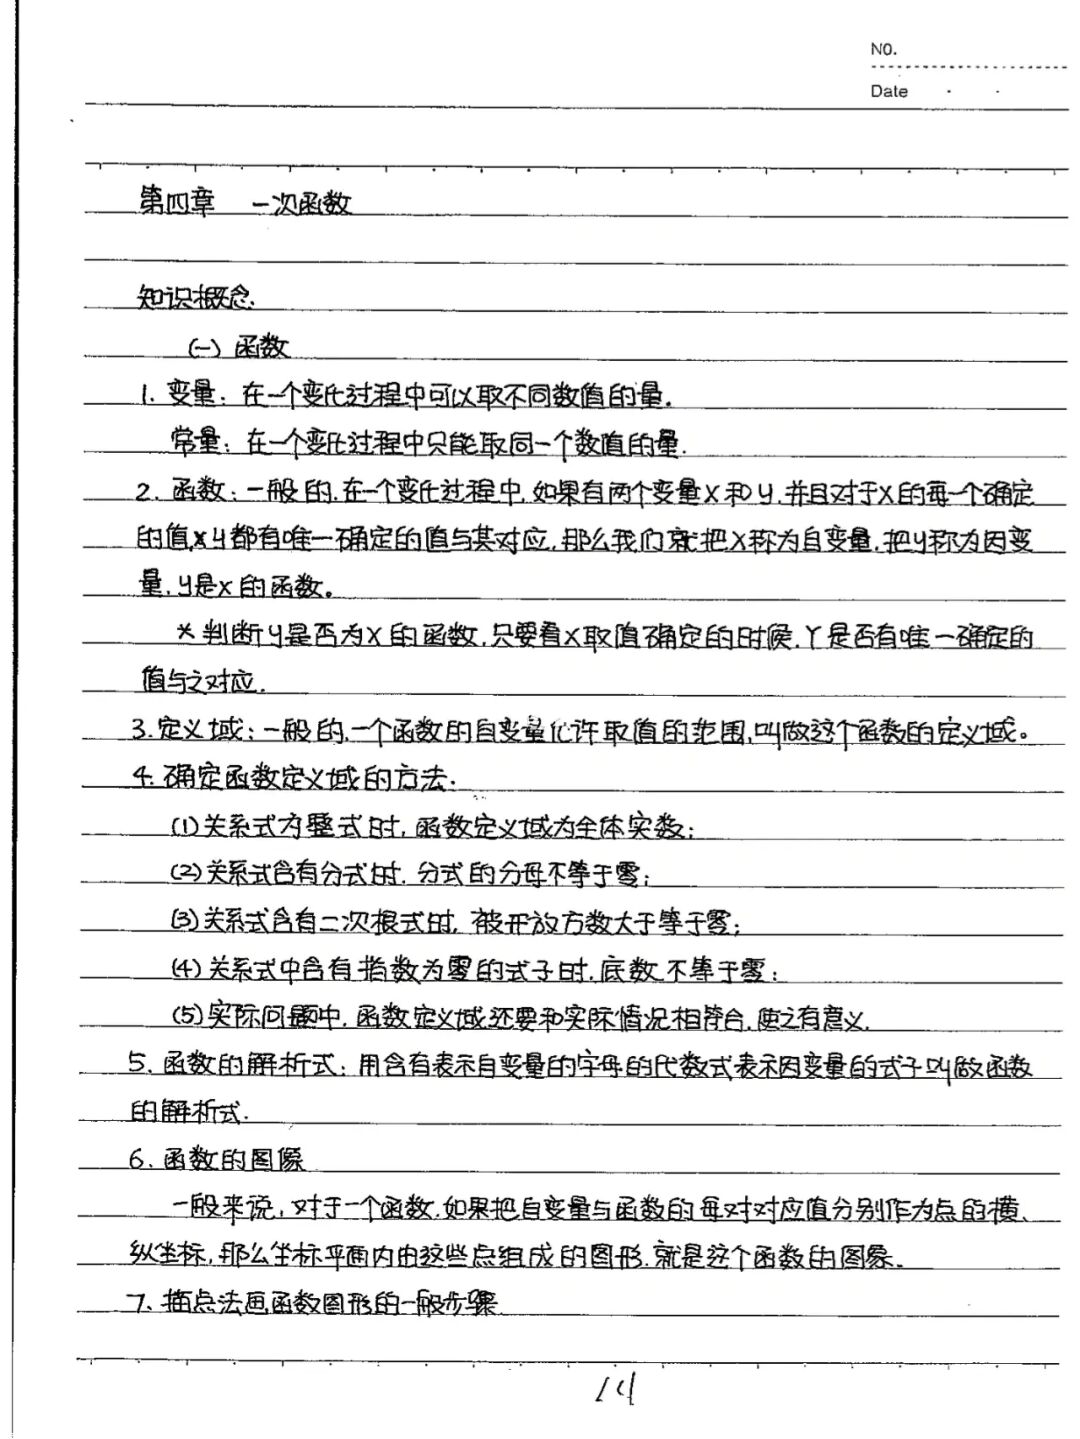 NO.
Date
第四章 一次函数
知识概念.
(一) 函数
1. 变量: 在一个变化过程中可以取不同数值的量.
常量: 在一个变化过程中只能取同一个数值的量.
2. 函数: 一般的.在一个变化过程中.如果有两个变量X和y.并且对于X的每一个确定
的值,y都有唯一确定的值与其对应.那么我们就把X称为自变量.把y称为因变
量.y是x的函数。
*判断y是否为X的函数.只要看X取值确定的时候.Y是否有唯一确定的
值与之对应.
3.定义域: 一般的.一个函数的自变量允许取值的范围,叫做这个函数的定义域。
4. 确定函数定义域的方法.
(1)关系式为整式时, 函数定义域为全体实数;
(2)关系式含有分式时. 分式的分母不等于零;
(3)关系式含有二次根式时, 被开放方数大于等于零;
(4)关系式中含有指数为零的式子时.底数不等于零;
(5)实际问题中.函数定义域还要和实际情况相符合.使之有意义.
5. 函数的解析式: 用含有表示自变量的字母的代数式表示因变量的式子叫做函数
的解析式.
6. 函数的图像
一般来说, 对于一个函数.如果把自变量与函数的每对对应值分别作为点的横、
纵坐标,那么坐标平面内由这些点组成的图形.就是这个函数的图象.
7. 描点法画函数图形的一般步骤
14